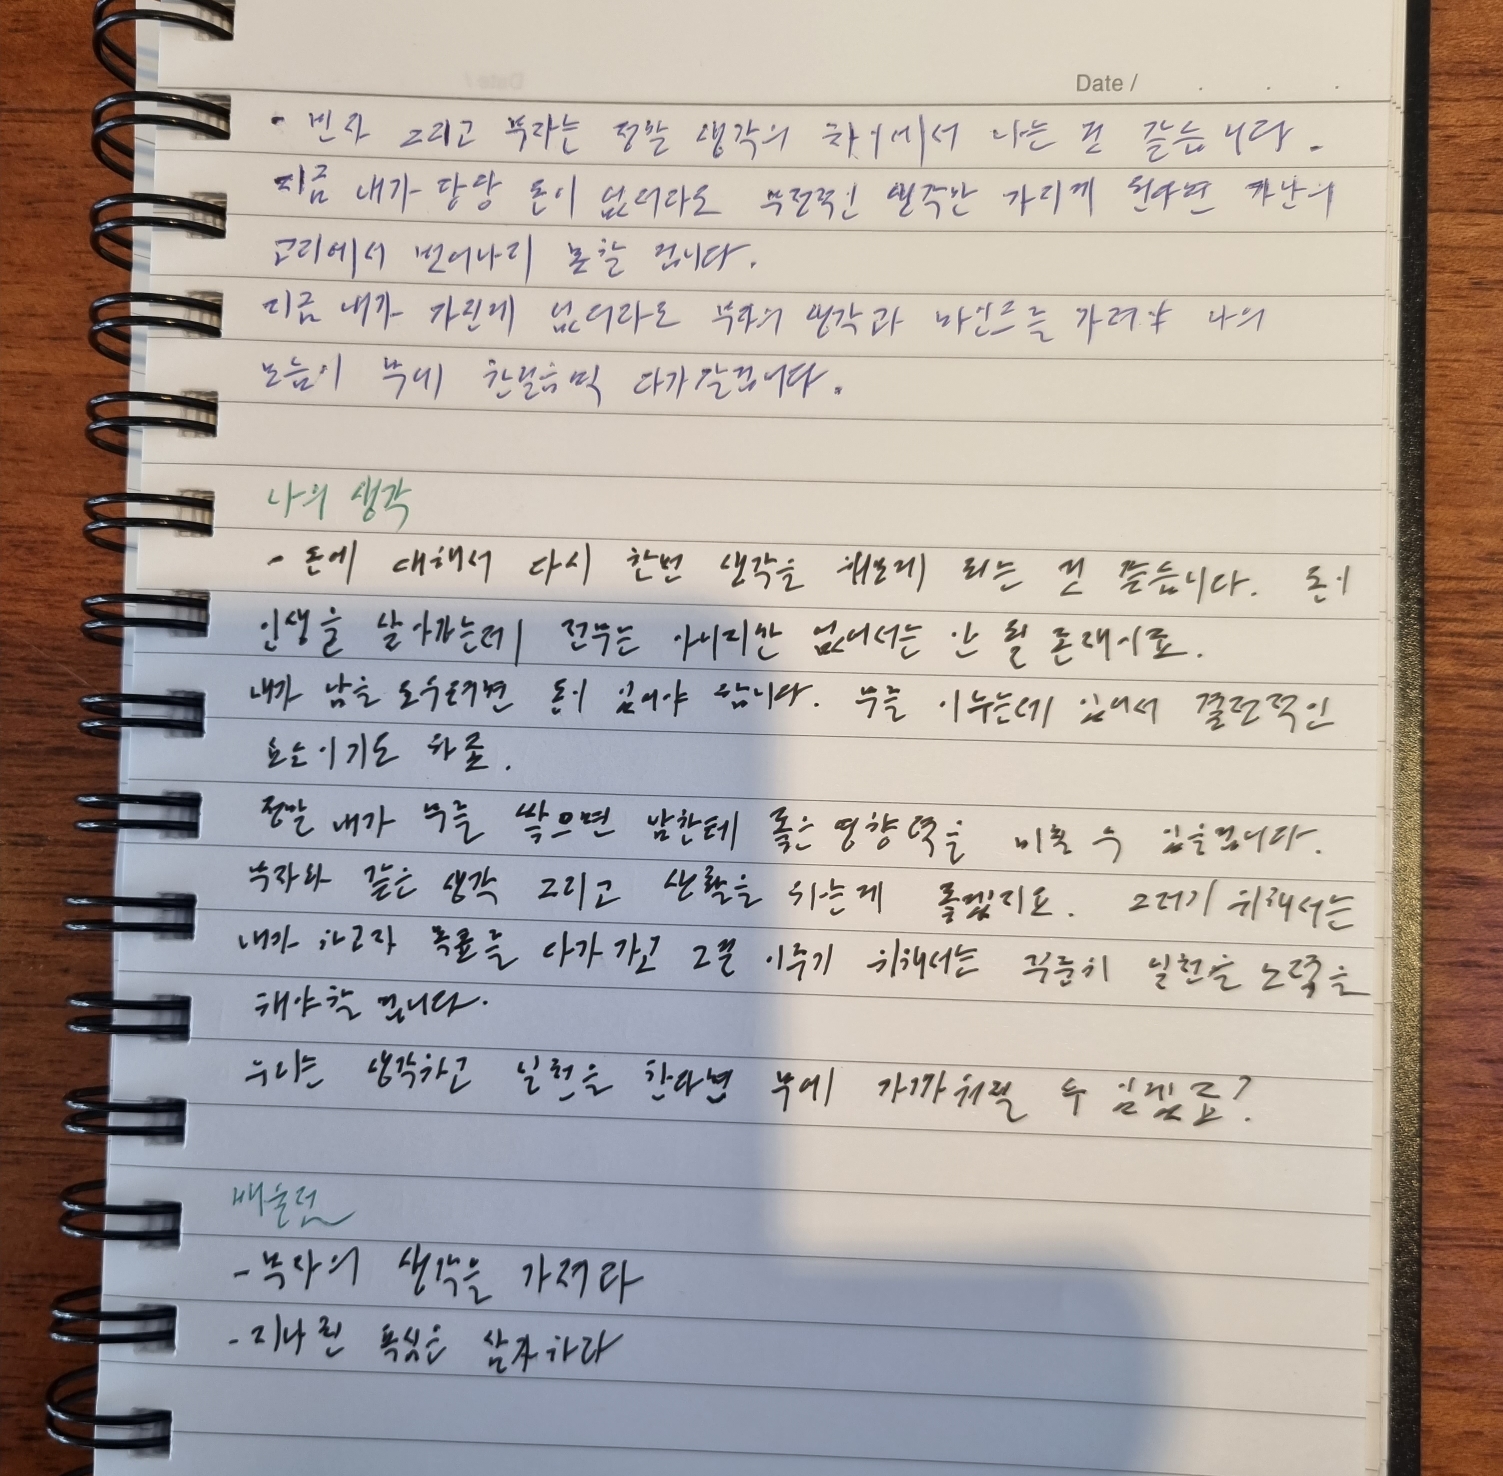 Date /
- 빈자 그리고 부자는 정말 생각의 차이에서 나는 것 같습니다.
지금 내가 당장 돈이 없더라도 부정적인 생각만 가지게 된다면 가난의
고리에서 벗어나지 못할 겁니다.
지금 내가 가진게 없더라도 부자의 생각과 마인드를 가져야 나의
모습이 부에 한걸음씩 다가갈겁니다.
나의 생각
- 돈에 대해서 다시 한번 생각을 해보게 되는 것 같습니다. 돈이
인생을 살아가는데 전부는 아니지만 없어서는 안 될 존재이죠.
내가 남을 도우려면 돈이 있어야 합니다. 부를 이루는데 있어서 결정적인
요소이기도 하죠.
정말 내가 부를 쌓으면 남한테 좋은 영향력을 미칠 수 있을겁니다.
부자와 같은 생각 그리고 생활을 하는게 좋겠지요. 그러기 위해서는
내가 하고자 목표를 다가가고 그걸 이루기 위해서는 꾸준히 실천을 노력을
해야할 겁니다.
우리는 생각하고 실천을 한다면 부에 가까워질 수 있겠죠?
배울점
- 부자의 생각을 가져라
- 지나친 욕심은 삼가하라